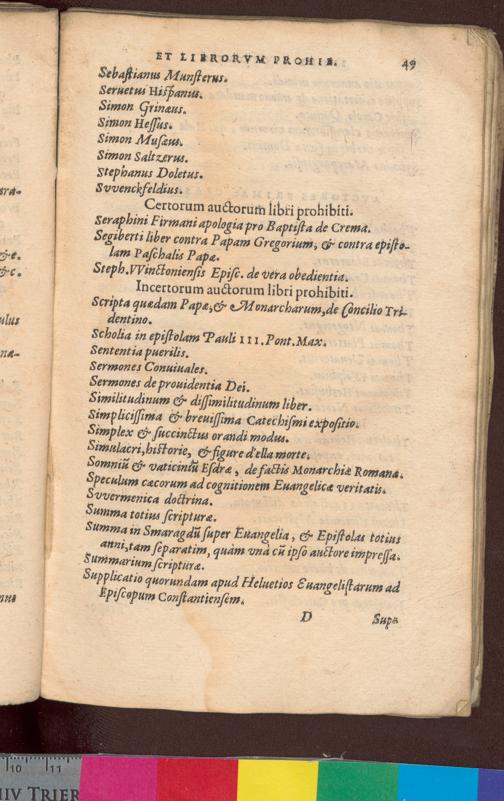 ET LIBRORVM PROHIB. 49
Sebastianus Munsterus.
Seruetus Hispanus.
Simon Grinæus.
Simon Hessus.
Simon Musæus.
Simon Saltzerus.
Stephanus Doletus.
Svvenckfeldius.
Certorum auctorum libri prohibiti.
Seraphini Firmani apologia pro Baptista de Crema.
Segiberti liber contra Papam Gregorium, & contra episto-
lam Paschalis Papæ.
Steph. VVinctoniensis Episc. de vera obedientia.
Incertorum auctorum libri prohibiti.
Scripta quædam Papæ, & Monarcharum, de Concilio Tri-
dentino.
Scholia in epistolam Pauli III. Pont. Max.
Sententia puerilis.
Sermones Conuiuales.
Sermones de prouidentia Dei.
Similitudinum & dissimilitudinum liber.
Simplicissima & breuissima Catechismi expositio.
Simplex & succinctus orandi modus.
Simulacri, historie, & figure d'ella morte.
Somniũ & vaticiniũ Esdræ, de factis Monarchiæ Romanæ.
Speculum cæcorum ad cognitionem Euangelicæ veritatis.
Svvermenica doctrina.
Summa totius scripturæ.
Summa in Smaragdũ super Euangelia, & Epistolas totius
anni, tam separatim, quàm vnà cũ ipso auctore impressa.
Summarium scripturæ.
Supplicatio quorundam apud Heluetios Euangelistarum ad
Episcopum Constantiensem.
D Sup-
10 11
HIV TRIER